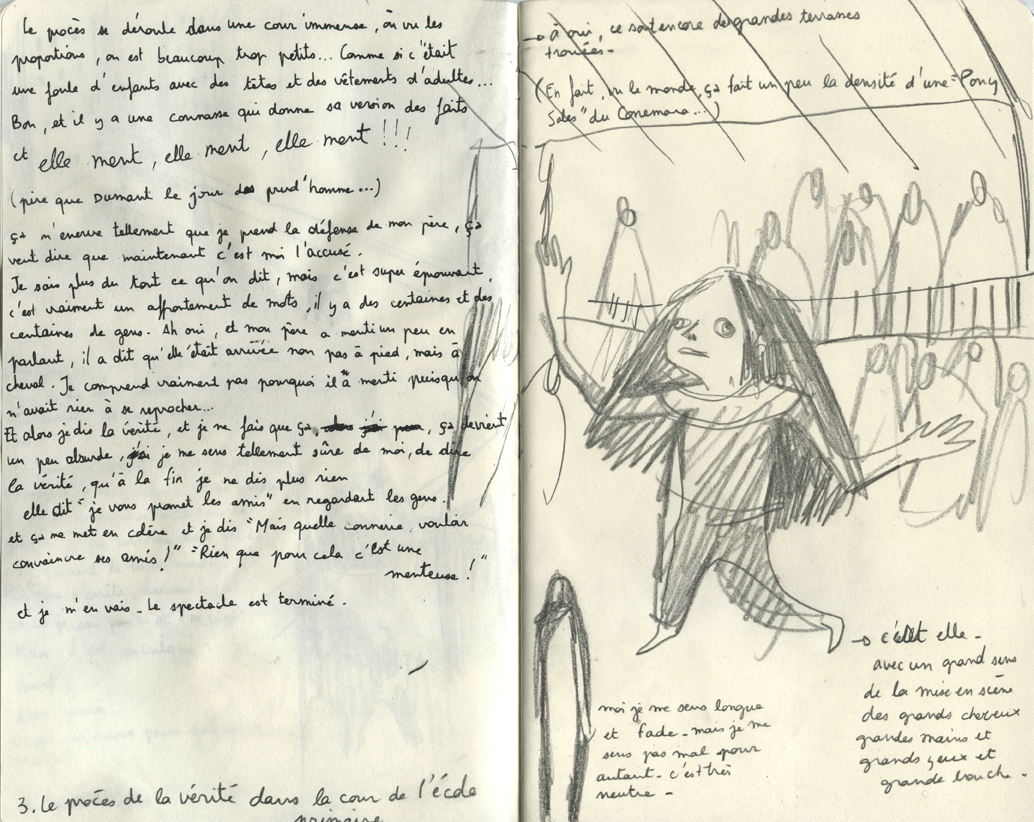 Le procès se déroule dans une cour immense, où vu les
proportions, on est beaucoup trop petits... Comme si c'était
une foule d'enfants avec des têtes et des vêtements d'adultes...
Bon, et il y a une connasse qui donne sa version des faits
et elle ment, elle ment, elle ment !!!
(pire que Dumant le jour des prud'homme...)
ça m'énerve tellement que je prend la défense de mon père, ça
veut dire que maintenant c'est moi l'accusé.
Je sais plus du tout ce qu'on dit, mais c'est super éprouvant,
c'est vraiment un affrontement de mots, il y a des centaines et des
centaines de gens. Ah oui, et mon père a menti un peu en
parlant, il a dit qu'elle était arrivée non pas à pied, mais à
cheval. Je comprend vraiment pas pourquoi il a menti puisqu'on
n'avait rien à se reprocher...
Et alors je dis la vérité, et je ne fais que ça, ça devient
un peu absurde, je me sens tellement sûre de moi, de dire
la vérité, qu'à la fin je ne dis plus rien
elle dit "je vous promet les amis" en regardant les gens.
et ça me met en colère et je dis "Mais quelle connerie, vouloir
convaincre ses amis !" "Rien que pour cela c'est une
menteuse !"
et je m'en vais - le spectacle est terminé.
3. Le procès de la vérité dans la cour de l'école
primaire
→ à oui, ce sont encore des grandes terrasses
trouées -
(En fait, vu le monde, ça fait un peu la densité d'une "Pony
Sales" du Conemara...)
→ c'était elle -
avec un grand sens
de la mise en scène
des grands cheveux
grandes mains et
grands yeux et
grande bouche -
moi je me sens longue
et fade - mais je me
sens pas mal pour
autant - c'est très
neutre -